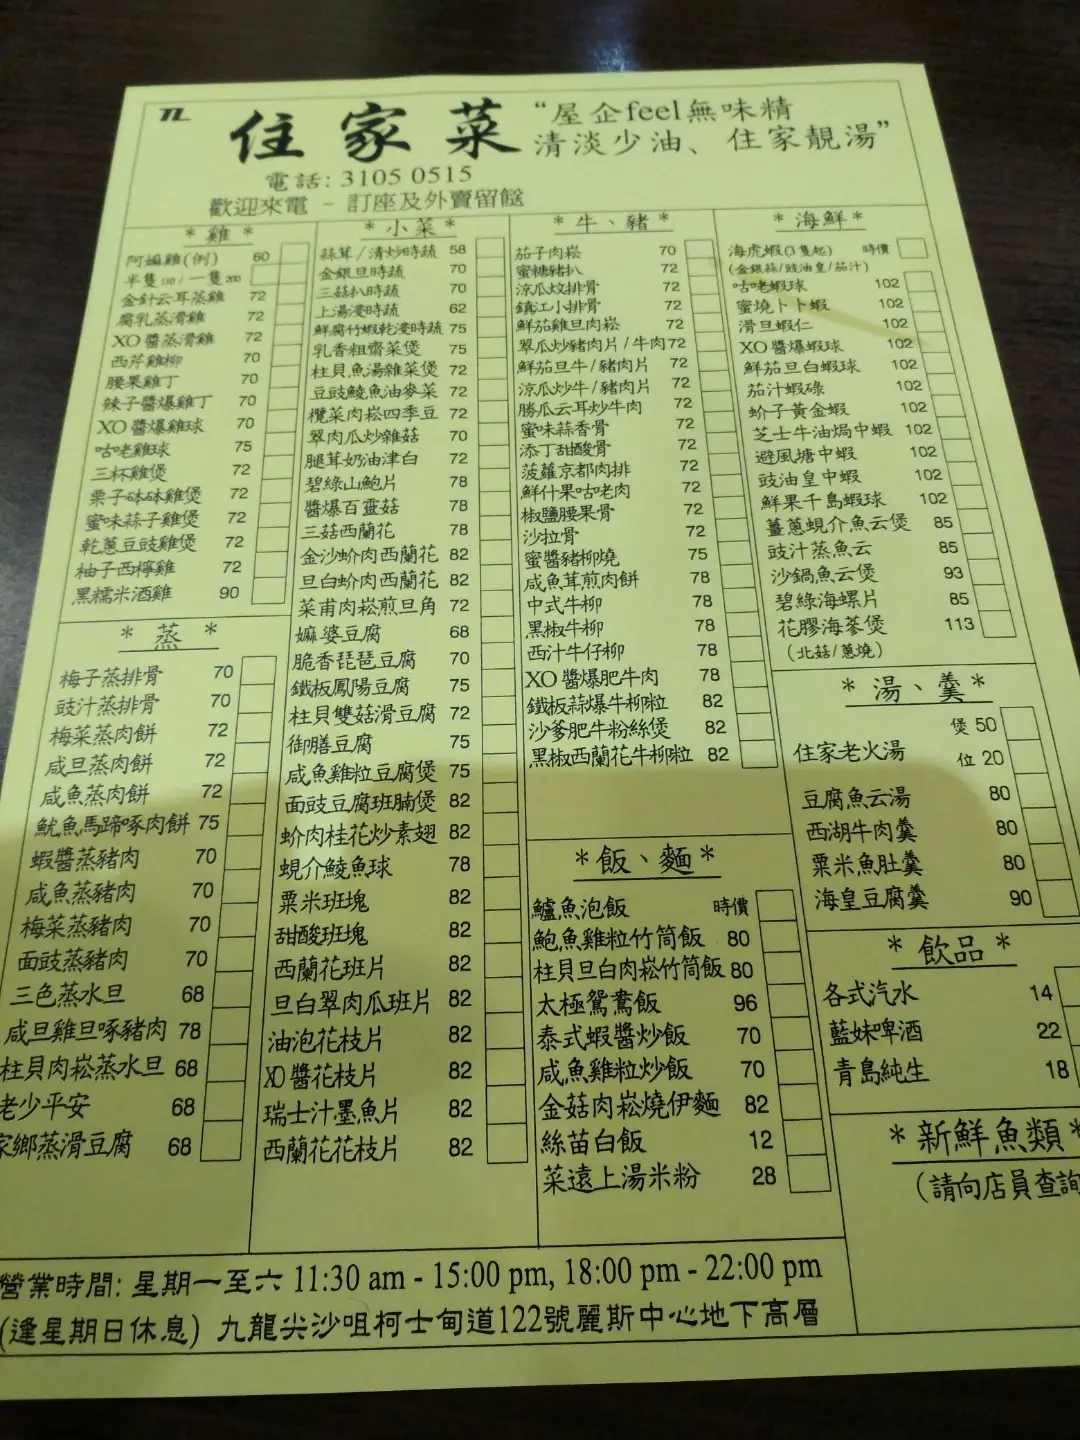 TL
住家菜
“屋企feel無味精
清淡少油、住家靚湯”
電話: 3105 0515
歡迎來電 - 訂座及外賣留餸
* 雞 *
阿嫲雞(例) 60
半隻110 / 一隻200
金針云耳蒸雞 72
腐乳蒸滑雞 72
XO醬蒸滑雞 72
西芹雞柳 70
腰果雞丁 70
辣子醬爆雞丁 70
XO醬爆雞球 70
咕老雞球 75
三杯雞煲 72
栗子砵砵雞煲 72
蜜味蒜子雞煲 72
乾蔥豆豉雞煲 72
柚子西檸雞 72
黑糯米酒雞 90
* 蒸 *
梅子蒸排骨 70
豉汁蒸排骨 70
梅菜蒸肉餅 72
咸旦蒸肉餅 72
咸魚蒸肉餅 72
魷魚馬蹄啄肉餅 75
蝦醬蒸豬肉 70
咸魚蒸豬肉 70
梅菜蒸豬肉 70
面豉蒸豬肉 70
三色蒸水旦 68
咸旦雞旦啄豬肉 78
柱貝肉崧蒸水旦 68
老少平安 68
家鄉蒸滑豆腐 68
* 小菜 *
蒜茸/清炒時蔬 58
金銀旦時蔬 70
三菇扒時蔬 70
上湯浸時蔬 62
鮮腐竹蝦乾浸時蔬 75
乳香粗齋菜煲 75
柱貝魚湯雜菜煲 72
豆豉鯪魚油麥菜 72
欖菜肉崧四季豆 72
翠肉瓜炒雜菇 70
腿茸奶油津白 72
碧綠山鮑片 78
醬爆百靈菇 78
三菇西蘭花 78
金沙蚧肉西蘭花 82
旦白蚧肉西蘭花 82
菜甫肉崧煎旦角 72
嫲婆豆腐 68
脆香琵琶豆腐 70
鐵板鳳陽豆腐 75
柱貝雙菇滑豆腐 72
御膳豆腐 75
咸魚雞粒豆腐煲 75
面豉豆腐班腩煲 82
蚧肉桂花炒素翅 82
蜆介鯪魚球 78
粟米班塊 82
甜酸班塊 82
西蘭花班片 82
旦白翠肉瓜班片 82
油泡花枝片 82
XO醬花枝片 82
瑞士汁墨魚片 82
西蘭花花枝片 82
* 牛、豬 *
茄子肉崧 70
蜜糖豬扒 72
涼瓜炆排骨 72
鎮江小排骨 72
鮮茄雞旦肉崧 72
翠瓜炒豬肉片/牛肉 72
鮮茄旦牛/豬肉片 72
涼瓜炒牛/豬肉片 72
勝瓜云耳炒牛肉 72
蜜味蒜香骨 72
添丁甜酸骨 72
菠蘿京都肉排 72
鮮什果咕老肉 72
椒鹽腰果骨 72
沙拉骨 72
蜜醬豬柳燒 75
咸魚茸煎肉餅 78
中式牛柳 78
黑椒牛柳 78
西汁牛仔柳 78
XO醬爆肥牛肉 78
鐵板蒜爆牛柳粒 82
沙爹肥牛粉絲煲 82
黑椒西蘭花牛柳粒 82
* 飯、麵 *
鱸魚泡飯 時價
鮑魚雞粒竹筒飯 80
柱貝旦白肉崧竹筒飯 80
太極鴛鴦飯 96
泰式蝦醬炒飯 70
咸魚雞粒炒飯 70
金菇肉崧燒伊麵 82
絲苗白飯 12
菜遠上湯米粉 28
* 海鮮 *
海虎蝦(3隻起) 時價
(金銀蒜/豉油皇/茄汁)
咕老蝦球 102
蜜燒卜卜蝦 102
滑旦蝦仁 102
XO醬爆蝦球 102
鮮茄旦白蝦球 102
茄汁蝦碌 102
蚧子黃金蝦 102
芝士牛油焗中蝦 102
避風塘中蝦 102
豉油皇中蝦 102
鮮果千島蝦球 102
薑蔥蜆介魚云煲 85
豉汁蒸魚云 85
沙鍋魚云煲 93
碧綠海螺片 85
花膠海蔘煲 113
(北菇/蔥燒)
* 湯、羹 *
煲 50
住家老火湯
位 20
豆腐魚云湯 80
西湖牛肉羹 80
粟米魚肚羹 80
海皇豆腐羹 90
* 飲品 *
各式汽水 14
藍妹啤酒 22
青島純生 18
* 新鮮魚類 *
(請向店員查詢
營業時間: 星期一至六 11:30 am - 15:00 pm, 18:00 pm - 22:00 pm
(逢星期日休息) 九龍尖沙咀柯士甸道122號麗斯中心地下高層